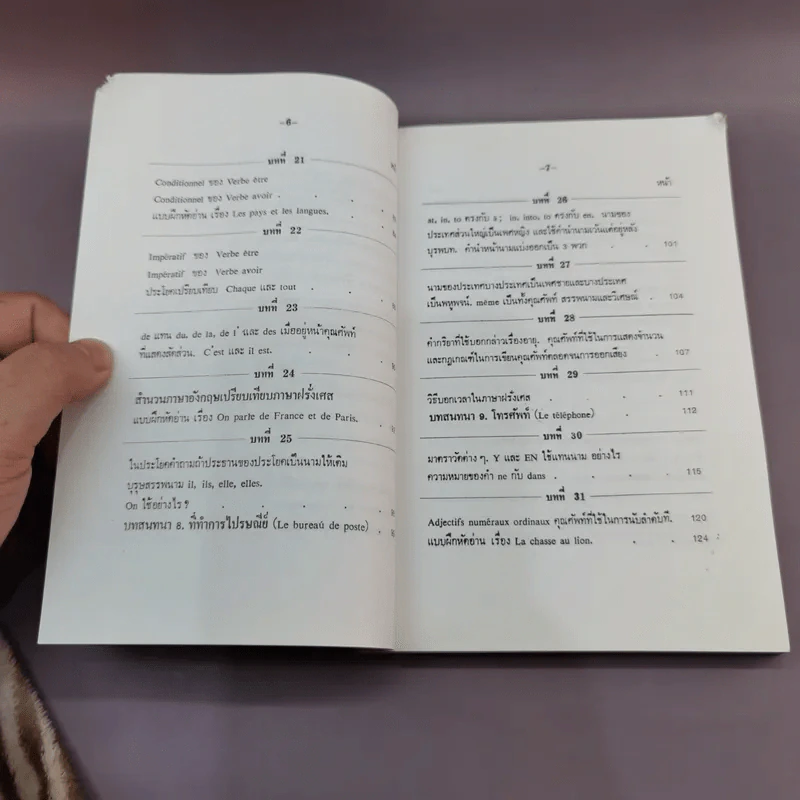 -6-
บทที่ 21
Conditionnel ของ Verbe être
Conditionnel ของ Verbe avoir . . . .
แบบฝึกหัดอ่าน เรื่อง Les pays et les langues.
บทที่ 22
Impératif ของ Verbe être
Impératif ของ Verbe avoir
ประโยคเปรียบเทียบ Chaque และ tout . . .
บทที่ 23
de แทน du, de la, de l' และ des เมื่ออยู่หน้าคุณศัพท์
ที่แสดงสัดส่วน. C'est และ il est. . . .
บทที่ 24
สำนวนภาษาอังกฤษเปรียบเทียบภาษาฝรั่งเศส
แบบฝึกหัดอ่าน เรื่อง On parle de France et de Paris.
บทที่ 25
ในประโยคคำถามถ้าประธานของประโยคเป็นนามให้เติม
บุรุษสรรพนาม il, ils, elle, elles.
On ใช้อย่างไร ? . . . .
บทสนทนา 8. ที่ทำการไปรษณีย์ (Le bureau de poste)
-7-
หน้า
บทที่ 26
at, in, to ตรงกับ à ; in, into, to ตรงกับ en. นามของ
ประเทศส่วนใหญ่เป็นเพศหญิง และใช้คำนำนามเว้นแต่อยู่หลัง
บุรพบท. คำนำหน้านามแบ่งออกเป็น 3 พวก . . 101
บทที่ 27
นามของประเทศบางประเทศเป็นเพศชายและบางประเทศ
เป็นพหูพจน์. même เป็นทั้งคุณศัพท์ สรรพนามและวิเศษณ์ . 104
บทที่ 28
คำกริยาที่ใช้บอกกล่าวเรื่องอายุ. คุณศัพท์ที่ใช้ในการแสดงจำนวน
และกฎเกณฑ์ในการเขียนคุณศัพท์ตลอดจนการออกเสียง . 107
บทที่ 29
วิธีบอกเวลาในภาษาฝรั่งเศส . . . 111
บทสนทนา 9. โทรศัพท์ (Le téléphone) . . 112
บทที่ 30
มาตราวัดต่าง ๆ. Y และ EN ใช้แทนนาม อย่างไร
ความหมายของคำ ne กับ dans . . . 115
บทที่ 31
Adjectifs numéraux ordinaux คุณศัพท์ที่ใช้ในการนับลำดับที่. 120
แบบฝึกหัดอ่าน เรื่อง La chasse au lion. . . . 124